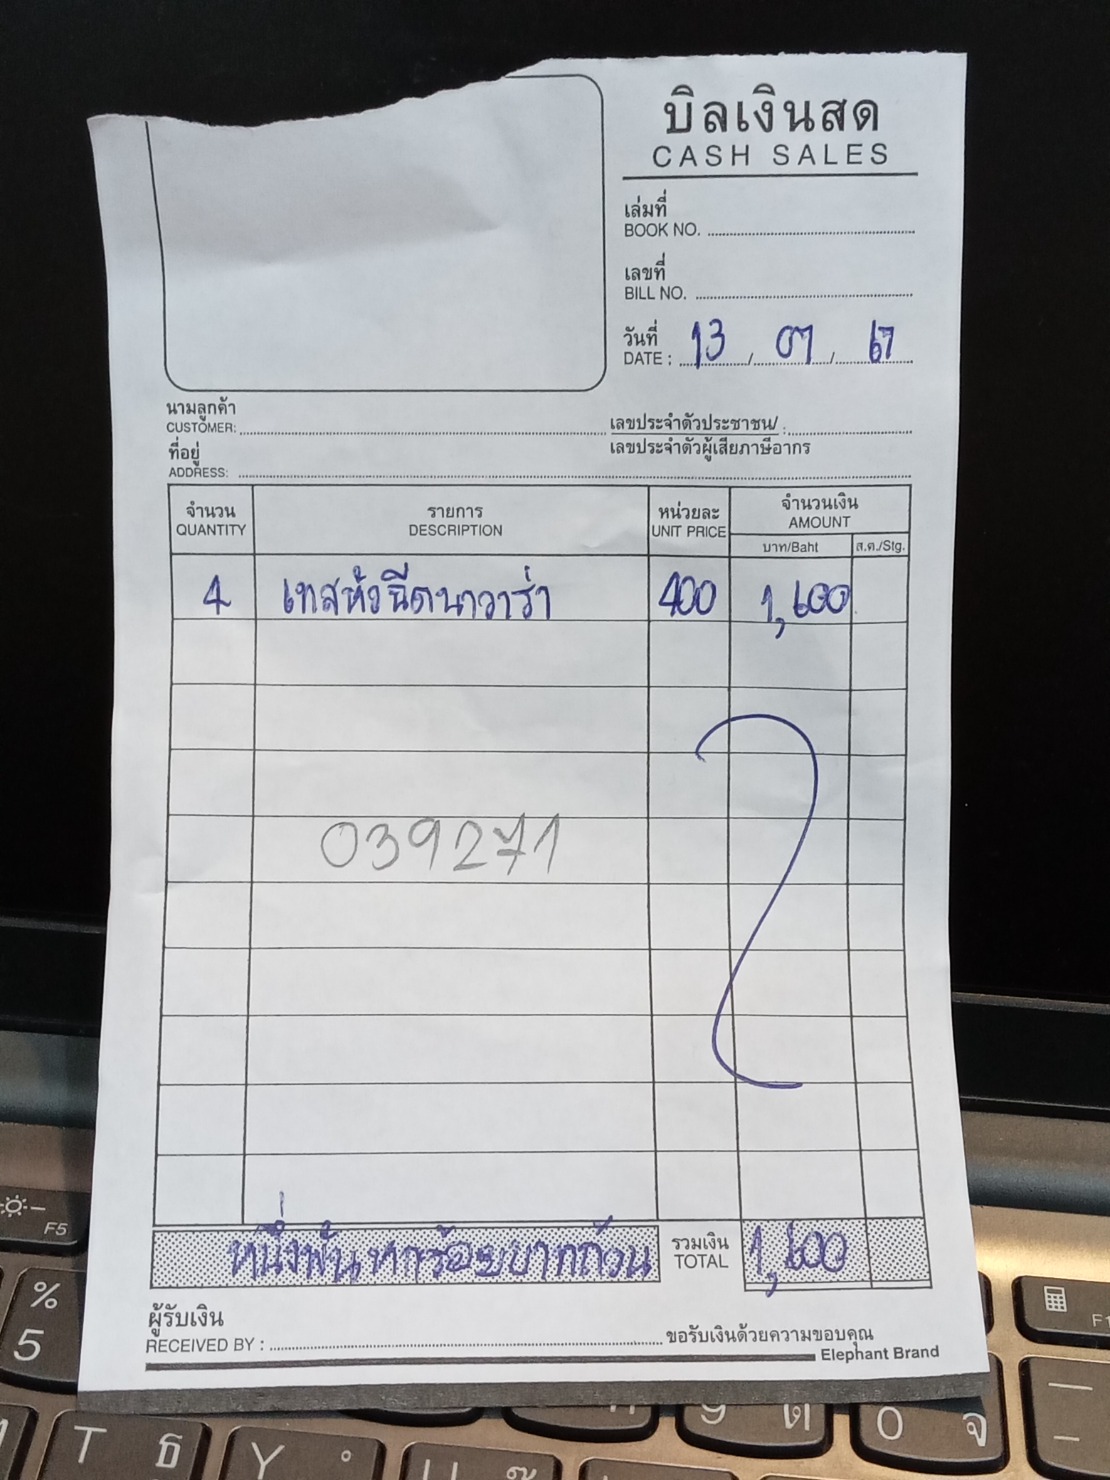 บิลเงินสด
CASH SALES
เล่มที่
BOOK NO.
เลขที่
BILL NO.
วันที่
DATE : 13 / 07 / 67
นามลูกค้า
CUSTOMER:
เลขประจำตัวประชาชน/ :
เลขประจำตัวผู้เสียภาษีอากร
ที่อยู่
ADDRESS:
จำนวน
QUANTITY
รายการ
DESCRIPTION
หน่วยละ
UNIT PRICE
จำนวนเงิน
AMOUNT
บาท/Baht ส.ต./Stg.
4 เทสหัวฉีดนาวาร่า 400 1,600
039271
หนึ่งพันหกร้อยบาทถ้วน
รวมเงิน
TOTAL
1,600
ผู้รับเงิน
RECEIVED BY :
ขอรับเงินด้วยความขอบคุณ
Elephant Brand
F5
%
5
T ธ
Y
9 ต
0 จ